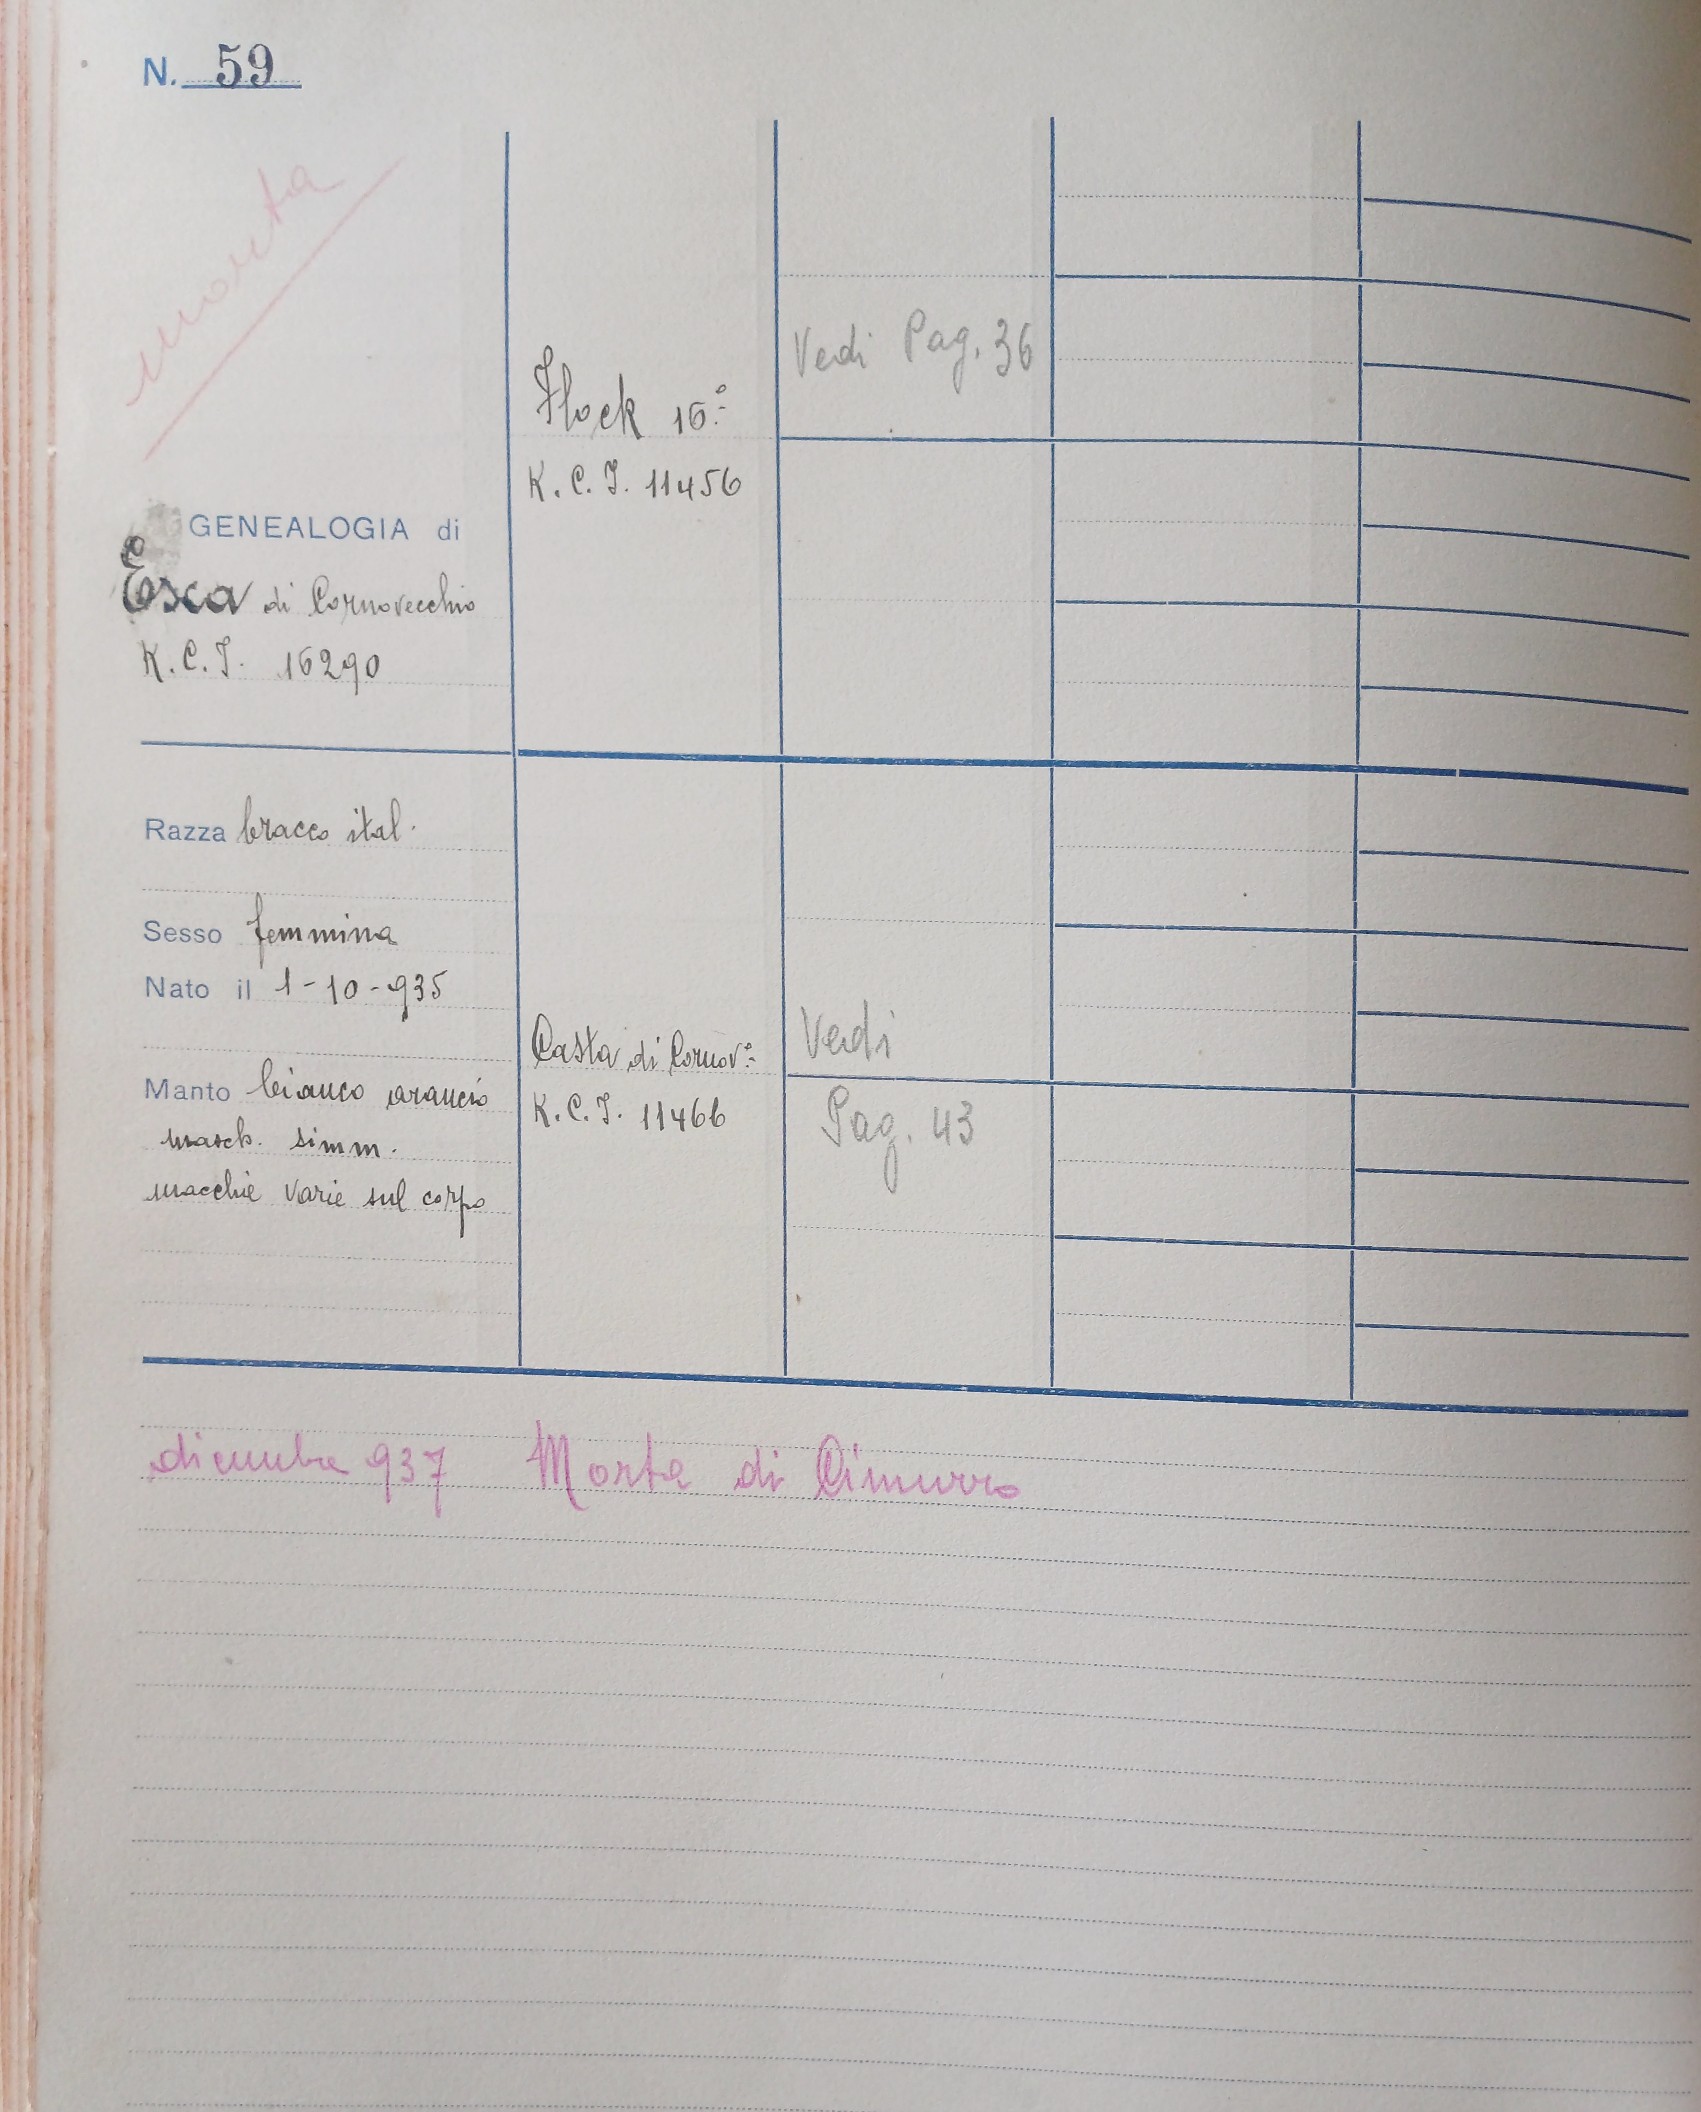 N. 59
morta
GENEALOGIA di
Esca di Cornovecchio
K.C.I. 16290
Razza bracco ital.
Sesso femmina
Nato il 1-10-935
Manto bianco arancio
masch. simm.
macchie varie sul corpo
Flock 16°
K.C.I. 11456
Casta di Cornov°
K.C.I. 11466
Vedi Pag. 36
Vedi
Pag. 43
dicembre 937 Morta di Cimurro